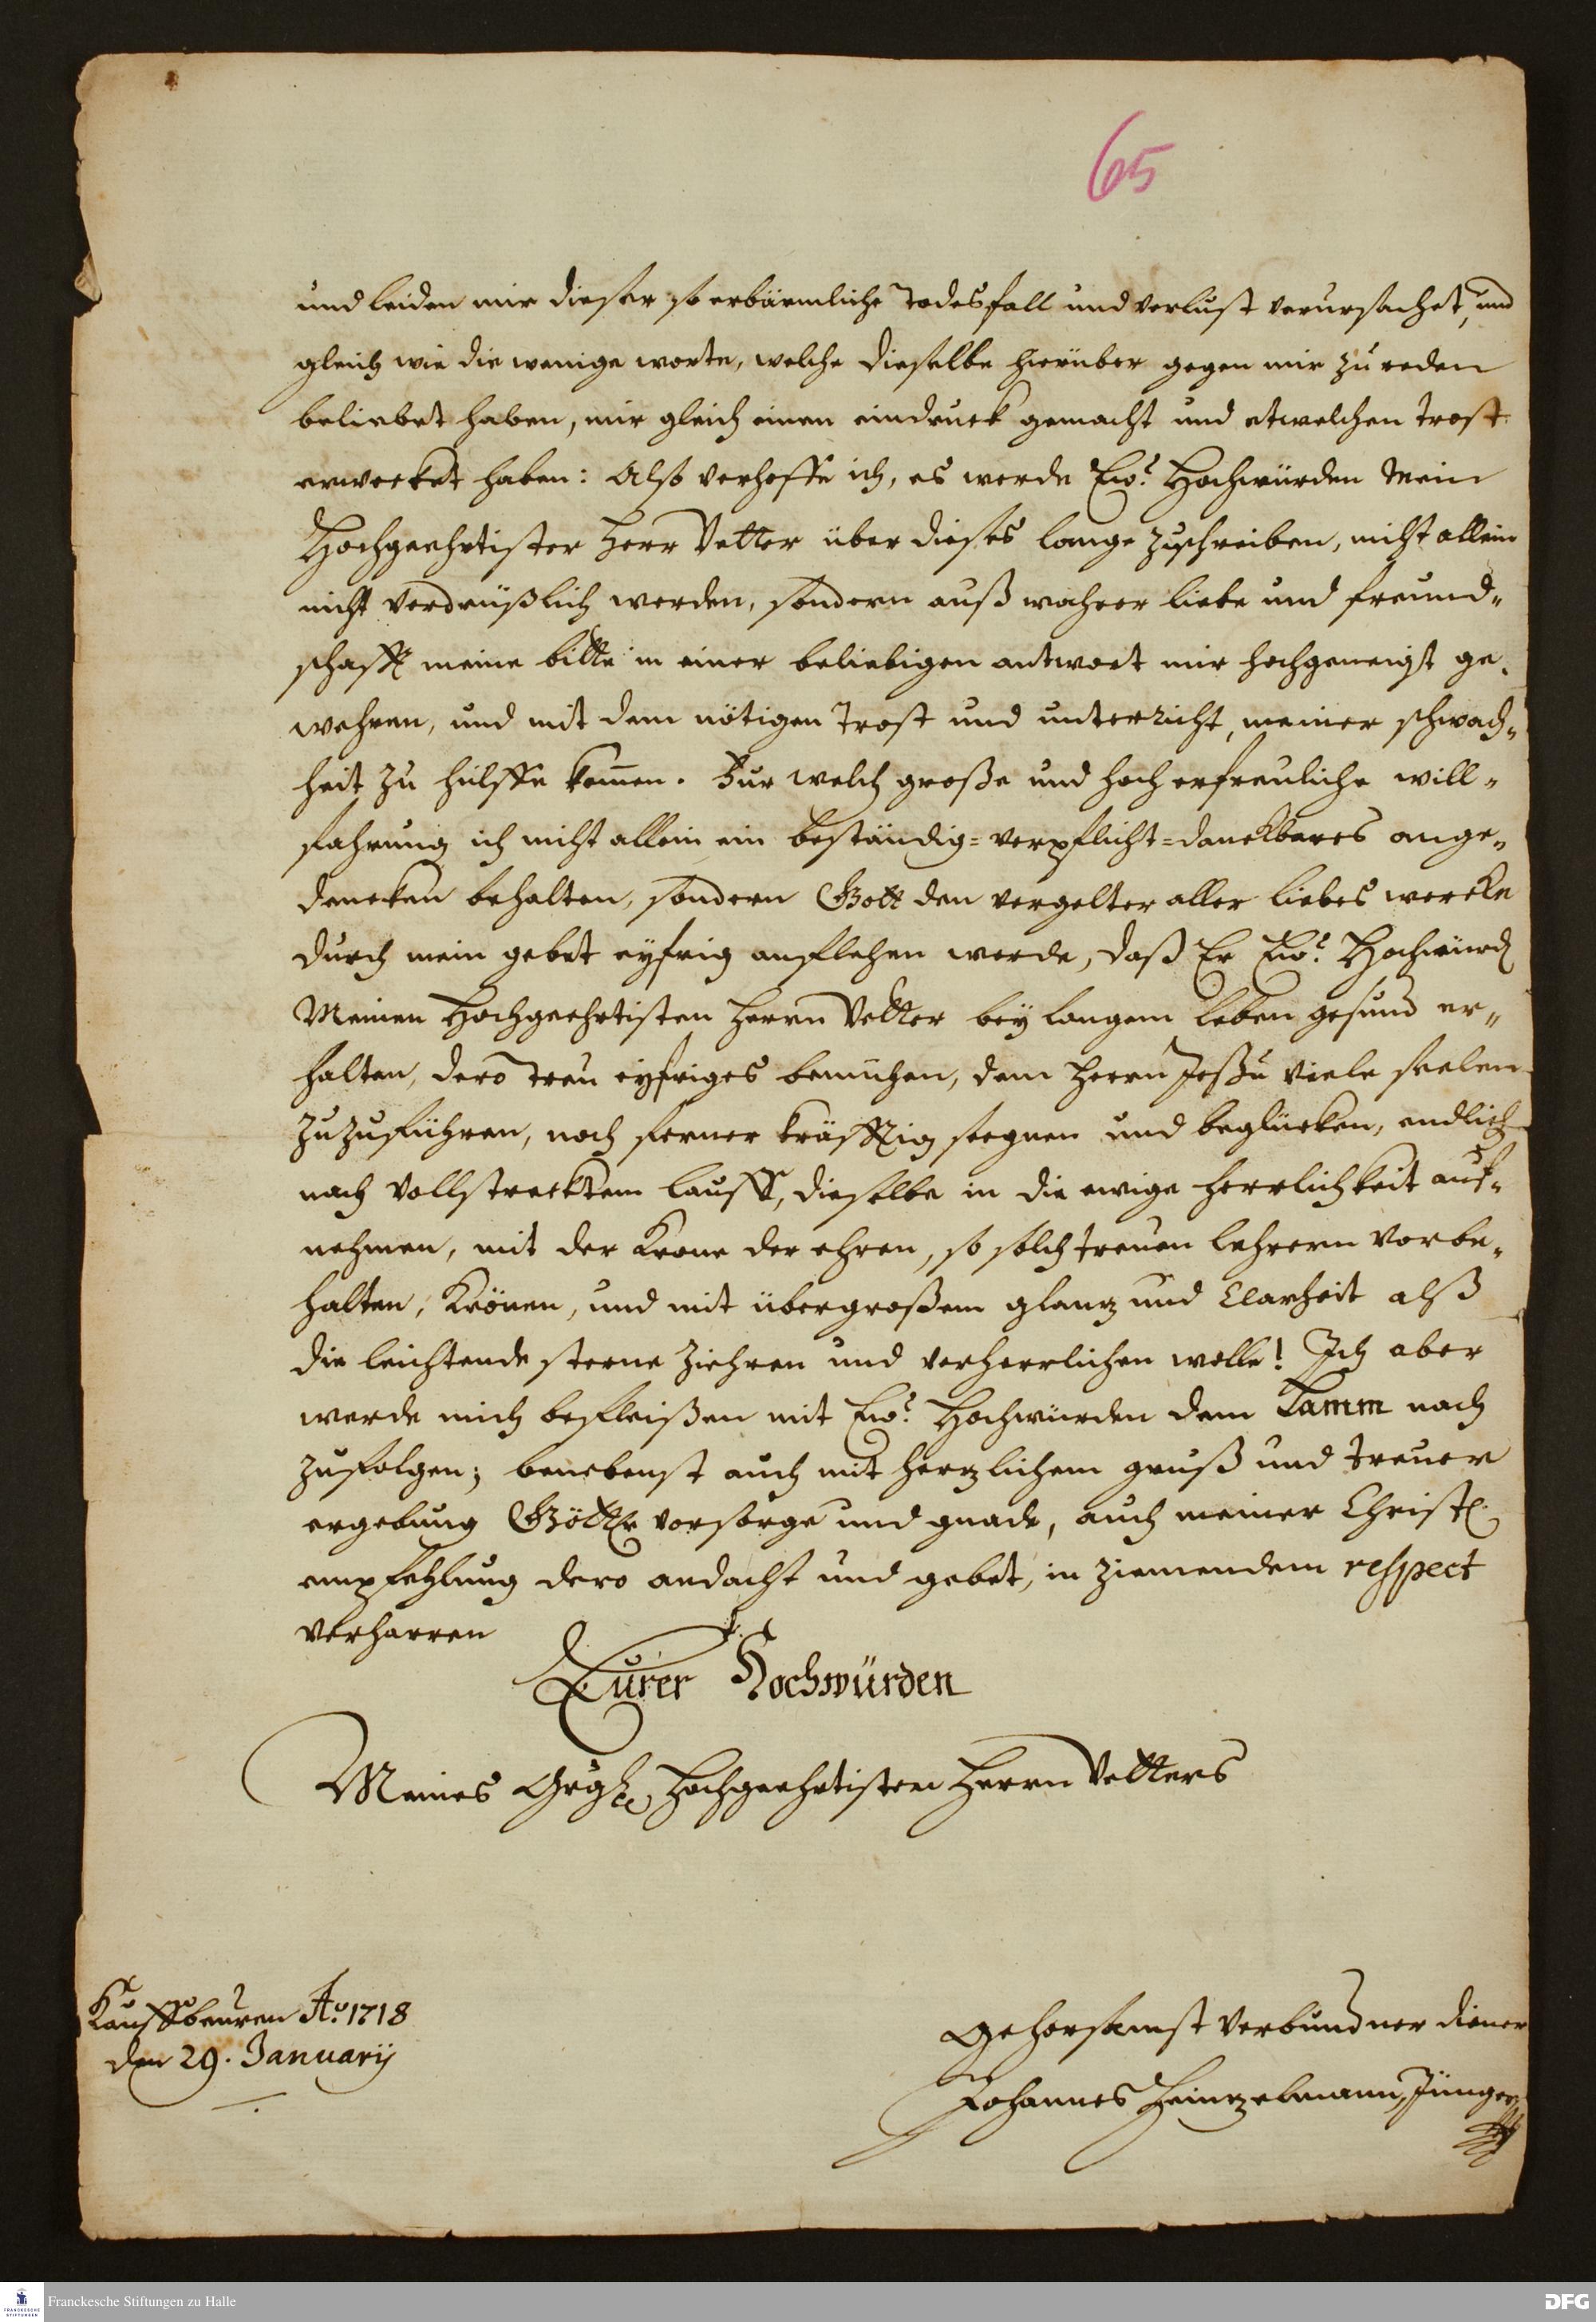 65
und leiden mir dieser so erbärmliche Todesfall und verlust verursachet, und
gleich wie die wenige worte, welche dieselbe hierüber gegen mir zu reden
beliebet haben, mir gleich einen eindruck gemacht und etwelchen trost
erwecket haben: Also verhoffe ich, es werde Ew.r Hochwürden Mein
Hochgeehrtister Herr Vetter über dieses lange zuschreiben, nicht allein
nicht verdrüßlich werden, sondern auß wahrer liebe und freund-
schafft meine bitte in einer beliebigen antwort mir hochgeneigt ge-
wehren, und mit dem nötigen Trost und unterricht, meiner schwach-
heit zu hülffe kom̅en. Fur welch große und hoch erfreuliche will-
fahrung ich nicht allein ein beständig=verpflicht=danckbares ange-
dencken behalten, sondern Gott den vergelter aller liebes wercke
durch mein gebet eyfrig anflehen werde, daß Er Ew.r Hochwürd
Meinen Hochgeehrtisten Herrn Vetter bey langem leben gesund er-
halten, dero treu eyfriges bemühen, dem Herrn Jeßu viele seelen
zuzuführen, noch ferner kräfftig seegnen und beglücken, endlich
nach vollstrecktem lauff, dieselbe in die ewige herrlichkeit auf-
nehmen, mit der Krone der ehren, so solch treuen lehrern vorbe-
halten, krönen, und mit übergroßem glantz und Clarheit alß
die leichtende sterne ziehren und verherrlichen wolle! Ich aber
werde mich befleißen mit Ew.r Hochwürden dem Lamm nach
zufolgen; benebenst auch mit hertzlichem gruß und treuer
ergebung Göttl. vorsorge und gnade, auch meiner Christl.
empfehlung dero andacht und gebet, in ziemendem respect
verharren
Eurer Hochwürden
Meines Hochgeehrtisten Herrn Vetters
Kauffbeuren Ao. 1718
den 29. Januarij
gehorsamst verbundner diener
Johannes Heintzelmann, Jünger
Franckesche Stiftungen zu Halle
DFG